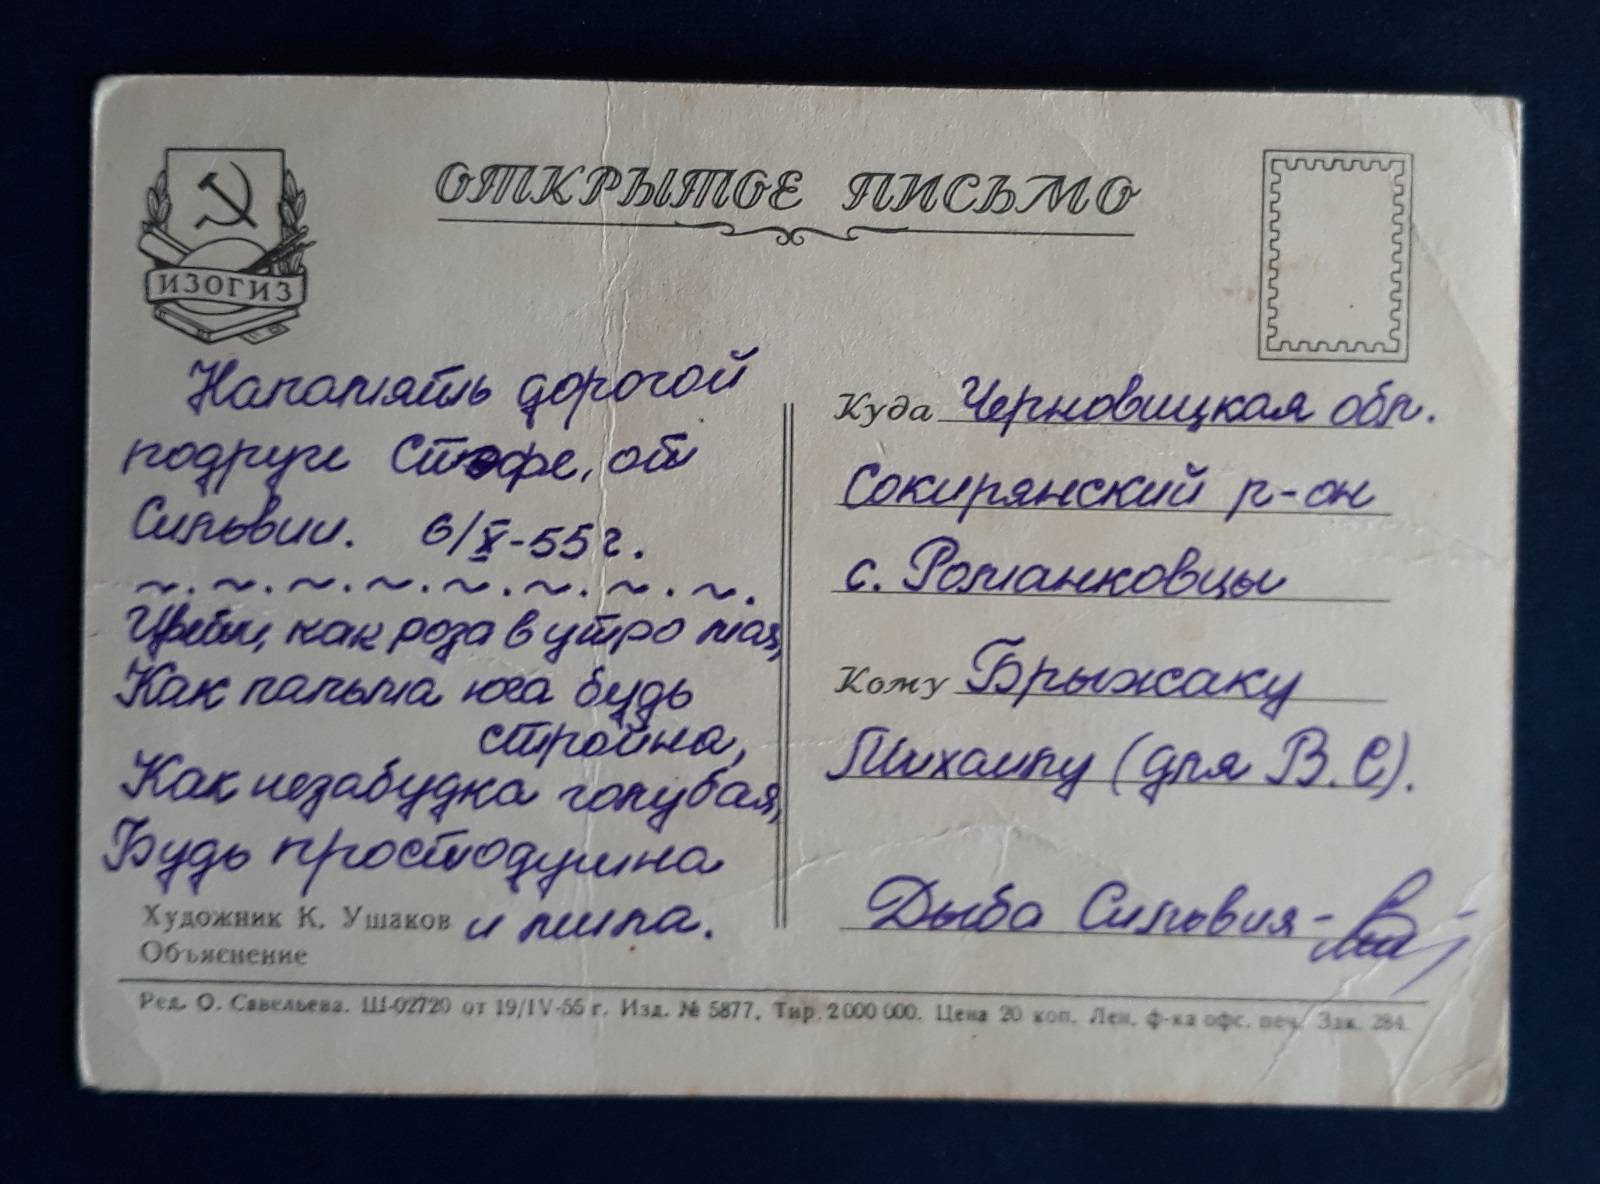 ОТКРЫТОЕ ПИСЬМО
ИЗОГИЗ
Напамять дорогой
подруги Стефе, от
Сильвии. 6/X-55 г.
~.~.~.~.~.~.~.~.
Цвети, как роза в утро мая,
Как пальма юга будь
стройна,
Как незабудка голубая,
Будь простодушна
и мила.
Художник К. Ушаков
Объяснение
Куда Черновицкая обл.
Сокирянский р-он
с. Романковцы
Кому Брыжаку
Михаилу (для В.С).
Дыба Сильвия-
Ред. О. Савельева. Ш-02720 от 19/IV-55 г. Изд. № 5877. Тир. 2 000 000. Цена 20 коп. Лен. ф-ка офс. печ. Зак. 284.